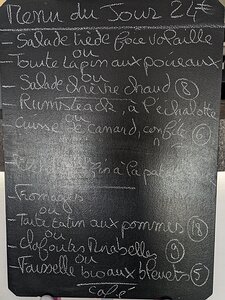 Menu du Jour 24€
- Salade tiède foie volaille
ou
- Tourte lapin aux poireaux
ou
- Salade chèvre chaud (8)
- Rumsteack, à l'échalotte
ou
Cuisse de canard, confite (6)
- Fromages
ou
- Tarte tatin aux pommes (8)
ou
- Clafoutis Mirabelles (9)
ou
- Faisselle bio aux bleuets (5)
Café